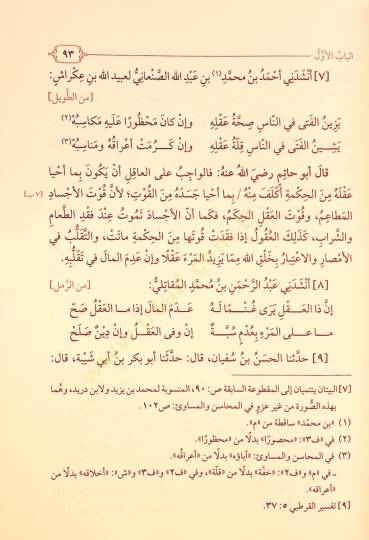 الباب الأوَّلُ
٩٣
[٧] أنْشَدَنِي أحْمَدُ بنُ محمَّدِ(١) بنِ عَبْدِ الله الصَّنْعَانِيُّ لعبيد الله بنِ عِكْراشٍ:
[من الطَّويل]
يَزِينُ الفَتَى في النَّاسِ صِحَّةُ عَقْلِهِ وإنْ كانَ مَحْظُورًا عَلَيهِ مَكاسِبُهْ(٢)
يَشِـينُ الفَتَى في النَّاسِ قِلَّةُ عَقْلِهِ وإنْ كَـرُمَتْ أعْراقُهُ ومَناسِبُهْ(٣)
قالَ أبو حاتِمٍ رضيَ اللهُ عنهُ: فالواجِبُ على العاقِلِ أنْ يَكُونَ بِما أحْيا
عَقْلَهُ مِنَ الحِكْمَةِ أكْلَفَ مِنْهُ / بِما أحْيا جَسَدَهُ مِنَ القُوْتِ؛ لأنَّ قُوْتَ الأجْسادِ
[٧ب]
المَطَاعِمُ، وقُوْتَ العَقْلِ الحِكَمُ، فكَما أنَّ الأجْسادَ تَمُوتُ عِنْدَ فَقْدِ الطَّعامِ
والشَّرابِ، كَذَلِكَ العُقُولُ إذا فَقَدَتْ قُوتَها مِنَ الحِكْمَةِ ماتَتْ، والتَّقَلُّبُ في
الأمْصارِ والاعْتِبارُ بِخَلْقِ اللهِ مِمّا يَزِيدُ المَرْءَ عَقْلًا وإنْ عَدِمَ المالَ في تَقَلُّبِهِ.
[٨] أنْشَدَنِي عَبْدُ الرَّحْمَنِ بْنُ مُحمَّدٍ المُقاتِليُّ:
[من الرَّمل]
إنَّ ذا العَقْـلِ يَرَى غُنْـمًا لَـهُ عَدَمَ المالِ إذا ما العَقْلُ صَحّ
ما على المَرْءِ بِعُدْمٍ سُبَّةٌ إنْ وفَى العَقْـلُ وإنْ دِيْنٌ صَلَحْ
[٩] حدَّثنا الحسَنُ بنُ سُفيان، قال: حدَّثنا أبو بكر بنُ أبي شَيْبة، قال:
[٧] البيتان ينتميان إلى المقطوعة السابقة ص: ٩٠، المنسوبة لمحمد بن يزيد ولابن دريد، وهُما
بهذه الصُّورة من غير عزوٍ في المحاسن والمساوئ: ص١٠٢.
(١) «بن محمَّد» ساقطة من «م».
(٢) في «ف٣»: «محصورًا» بدلًا من «محظورًا».
(٣) في المحاسن والمساوئ: «آباؤه» بدلًا من «أعراقُه».
ـ في «م» و«ف٢»: «خفَّة» بدلًا من «قلَّة»، وفي «ف٢» و«ف٣» و«ش»: «أخلاقه» بدلًا من
«أعراقه».
[٩] تفسير القرطبي ٥: ٣٧.